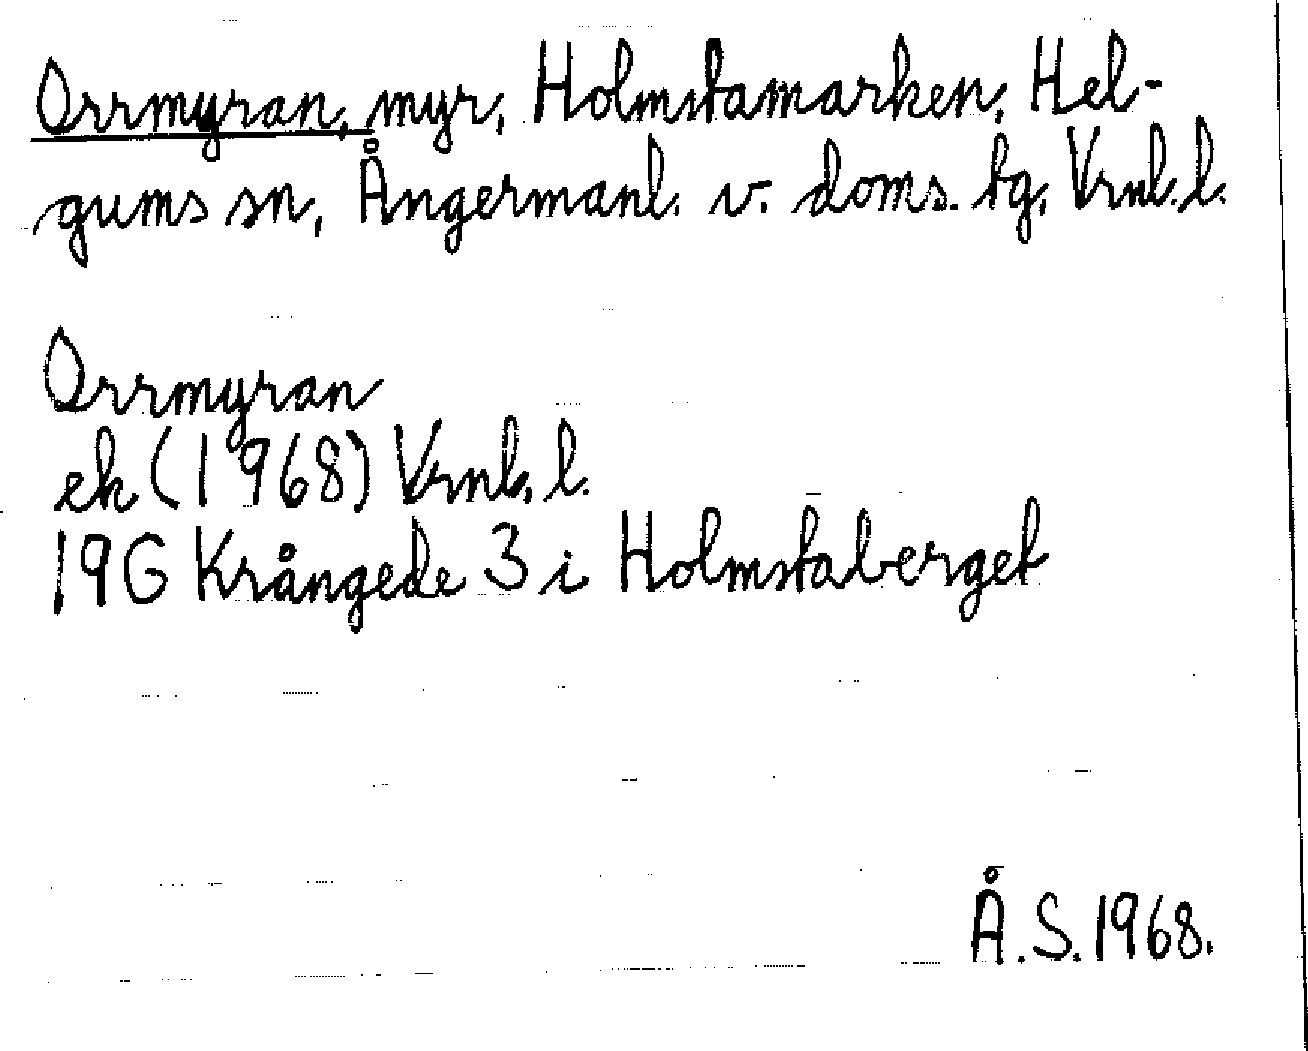 Orrmyran, myr, Holmstamarken, Hel-
gums sn, Ångermanl. v. doms. tg, Vrnl. l.
Orrmyran
ek (1968) Vrnl. l.
19G Krångede 3 i Holmstaberget
Å.S. 1968.